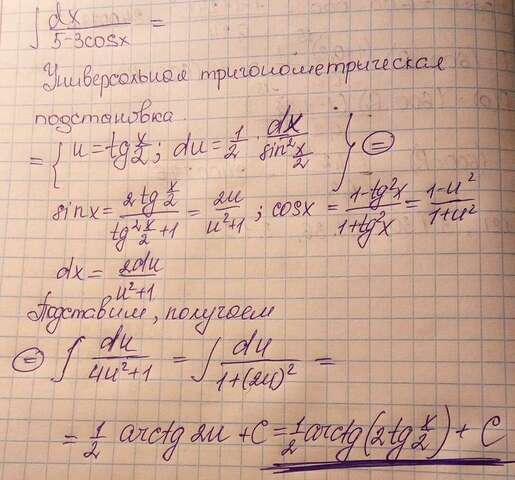 ∫ dx/(5-3cosx) =
Универсольная тригонометрическая
подстановка
= { u = tg x/2; du = 1/2 · dx/(sin² x/2) } ⊜
sinx = (2tg x/2)/(tg² x/2 + 1) = 2u/(u²+1); cosx = (1-tg²x)/(1+tg²x) = (1-u²)/(1+u²)
dx = 2du/(u²+1)
Подставим, получаем
⊜ ∫ du/(4u²+1) = ∫ du/(1+(2u)²) =
= 1/2 arctg 2u + C = 1/2 arctg(2tg x/2) + C